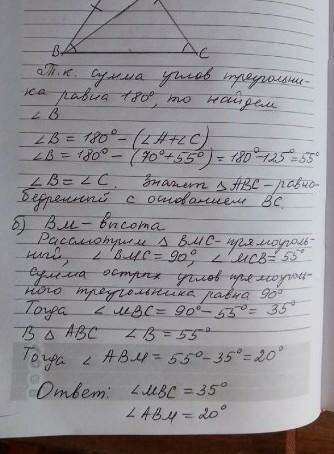 B C
Т.к. сумма углов треугольни-
ка равна 180°, то найдем
∠B
∠B = 180° - (∠A+∠C)
∠B = 180° - (70°+55°) = 180°-125°=55°
∠B = ∠C. Значит △ABC - равно-
бедренный с основанием BC.
б) BM - высота
Рассмотрим △ BMC - прямоуголь-
ный, ∠ BMC = 90°, ∠ MCB = 55°
сумма острых углов прямоуголь-
ного треугольника равна 90°
Тогда ∠ MBC = 90° - 55° = 35°
В △ ABC ∠B = 55°
Тогда ∠ ABM = 55° - 35° = 20°
Ответ: ∠MBC = 35°
∠ABM = 20°